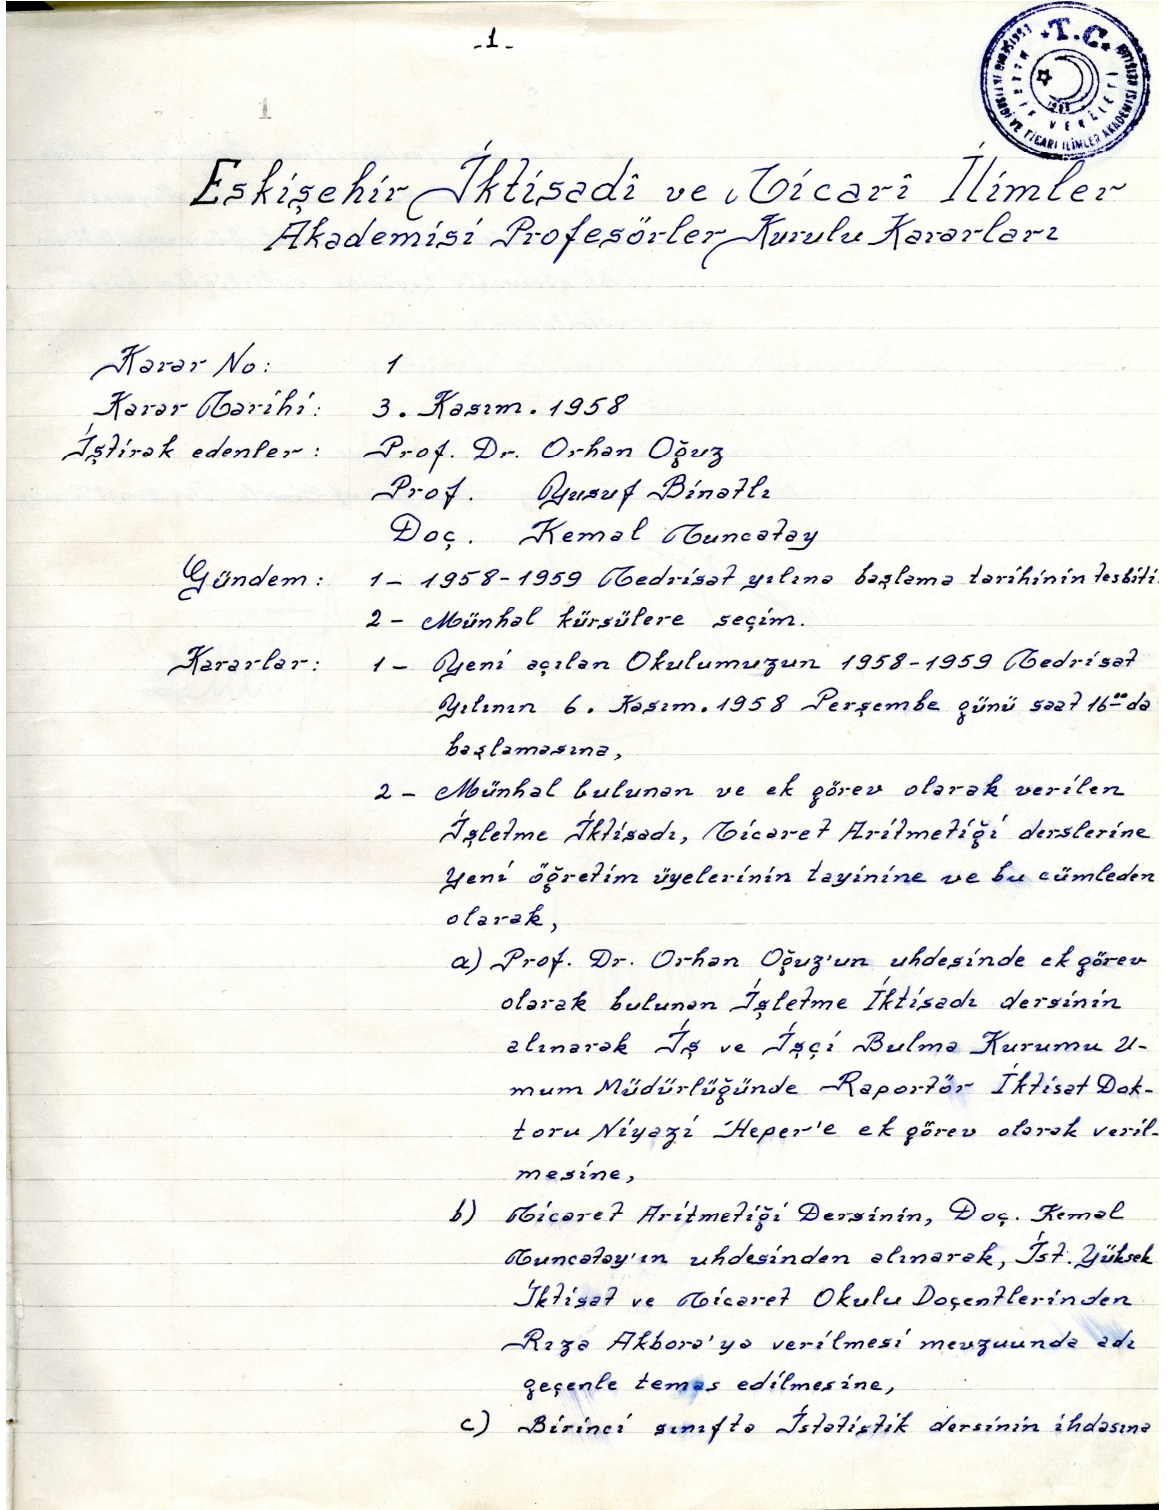 -1-
1
T.C.
Eskişehir İktisadî ve Ticarî İlimler
Akademisi Profesörler Kurulu Kararları
Karar No: 1
Karar Tarihi: 3. Kasım. 1958
İştirak edenler: Prof. Dr. Orhan Oğuz
Prof. Yusuf Binatlı
Doç. Kemal Tuncatay
Gündem: 1- 1958-1959 Tedrisat yılına başlama tarihinin tesbiti.
2- Münhal kürsülere seçim.
Kararlar: 1- Yeni açılan Okulumuzun 1958-1959 Tedrisat
Yılının 6. Kasım. 1958 Perşembe günü saat 16⁰⁰ da
başlamasına,
2- Münhal bulunan ve ek görev olarak verilen
İşletme İktisadı, Ticaret Aritmetiği derslerine
yeni öğretim üyelerinin tayinine ve bu cümleden
olarak,
a) Prof. Dr. Orhan Oğuz'un uhdesinde ek görev
olarak bulunan İşletme İktisadı dersinin
alınarak İş ve İşçi Bulma Kurumu U-
mum Müdürlüğünde Raportör İktisat Dok-
toru Niyazi Heper'e ek görev olarak veril-
mesine,
b) Ticaret Aritmetiği Dersinin, Doç. Kemal
Tuncatay'ın uhdesinden alınarak, İst. Yüksek
İktisat ve Ticaret Okulu Doçentlerinden
Rıza Akbora'ya verilmesi mevzuunda adı
geçenle temas edilmesine,
c) Birinci sınıfta İstatistik dersinin ihdasına